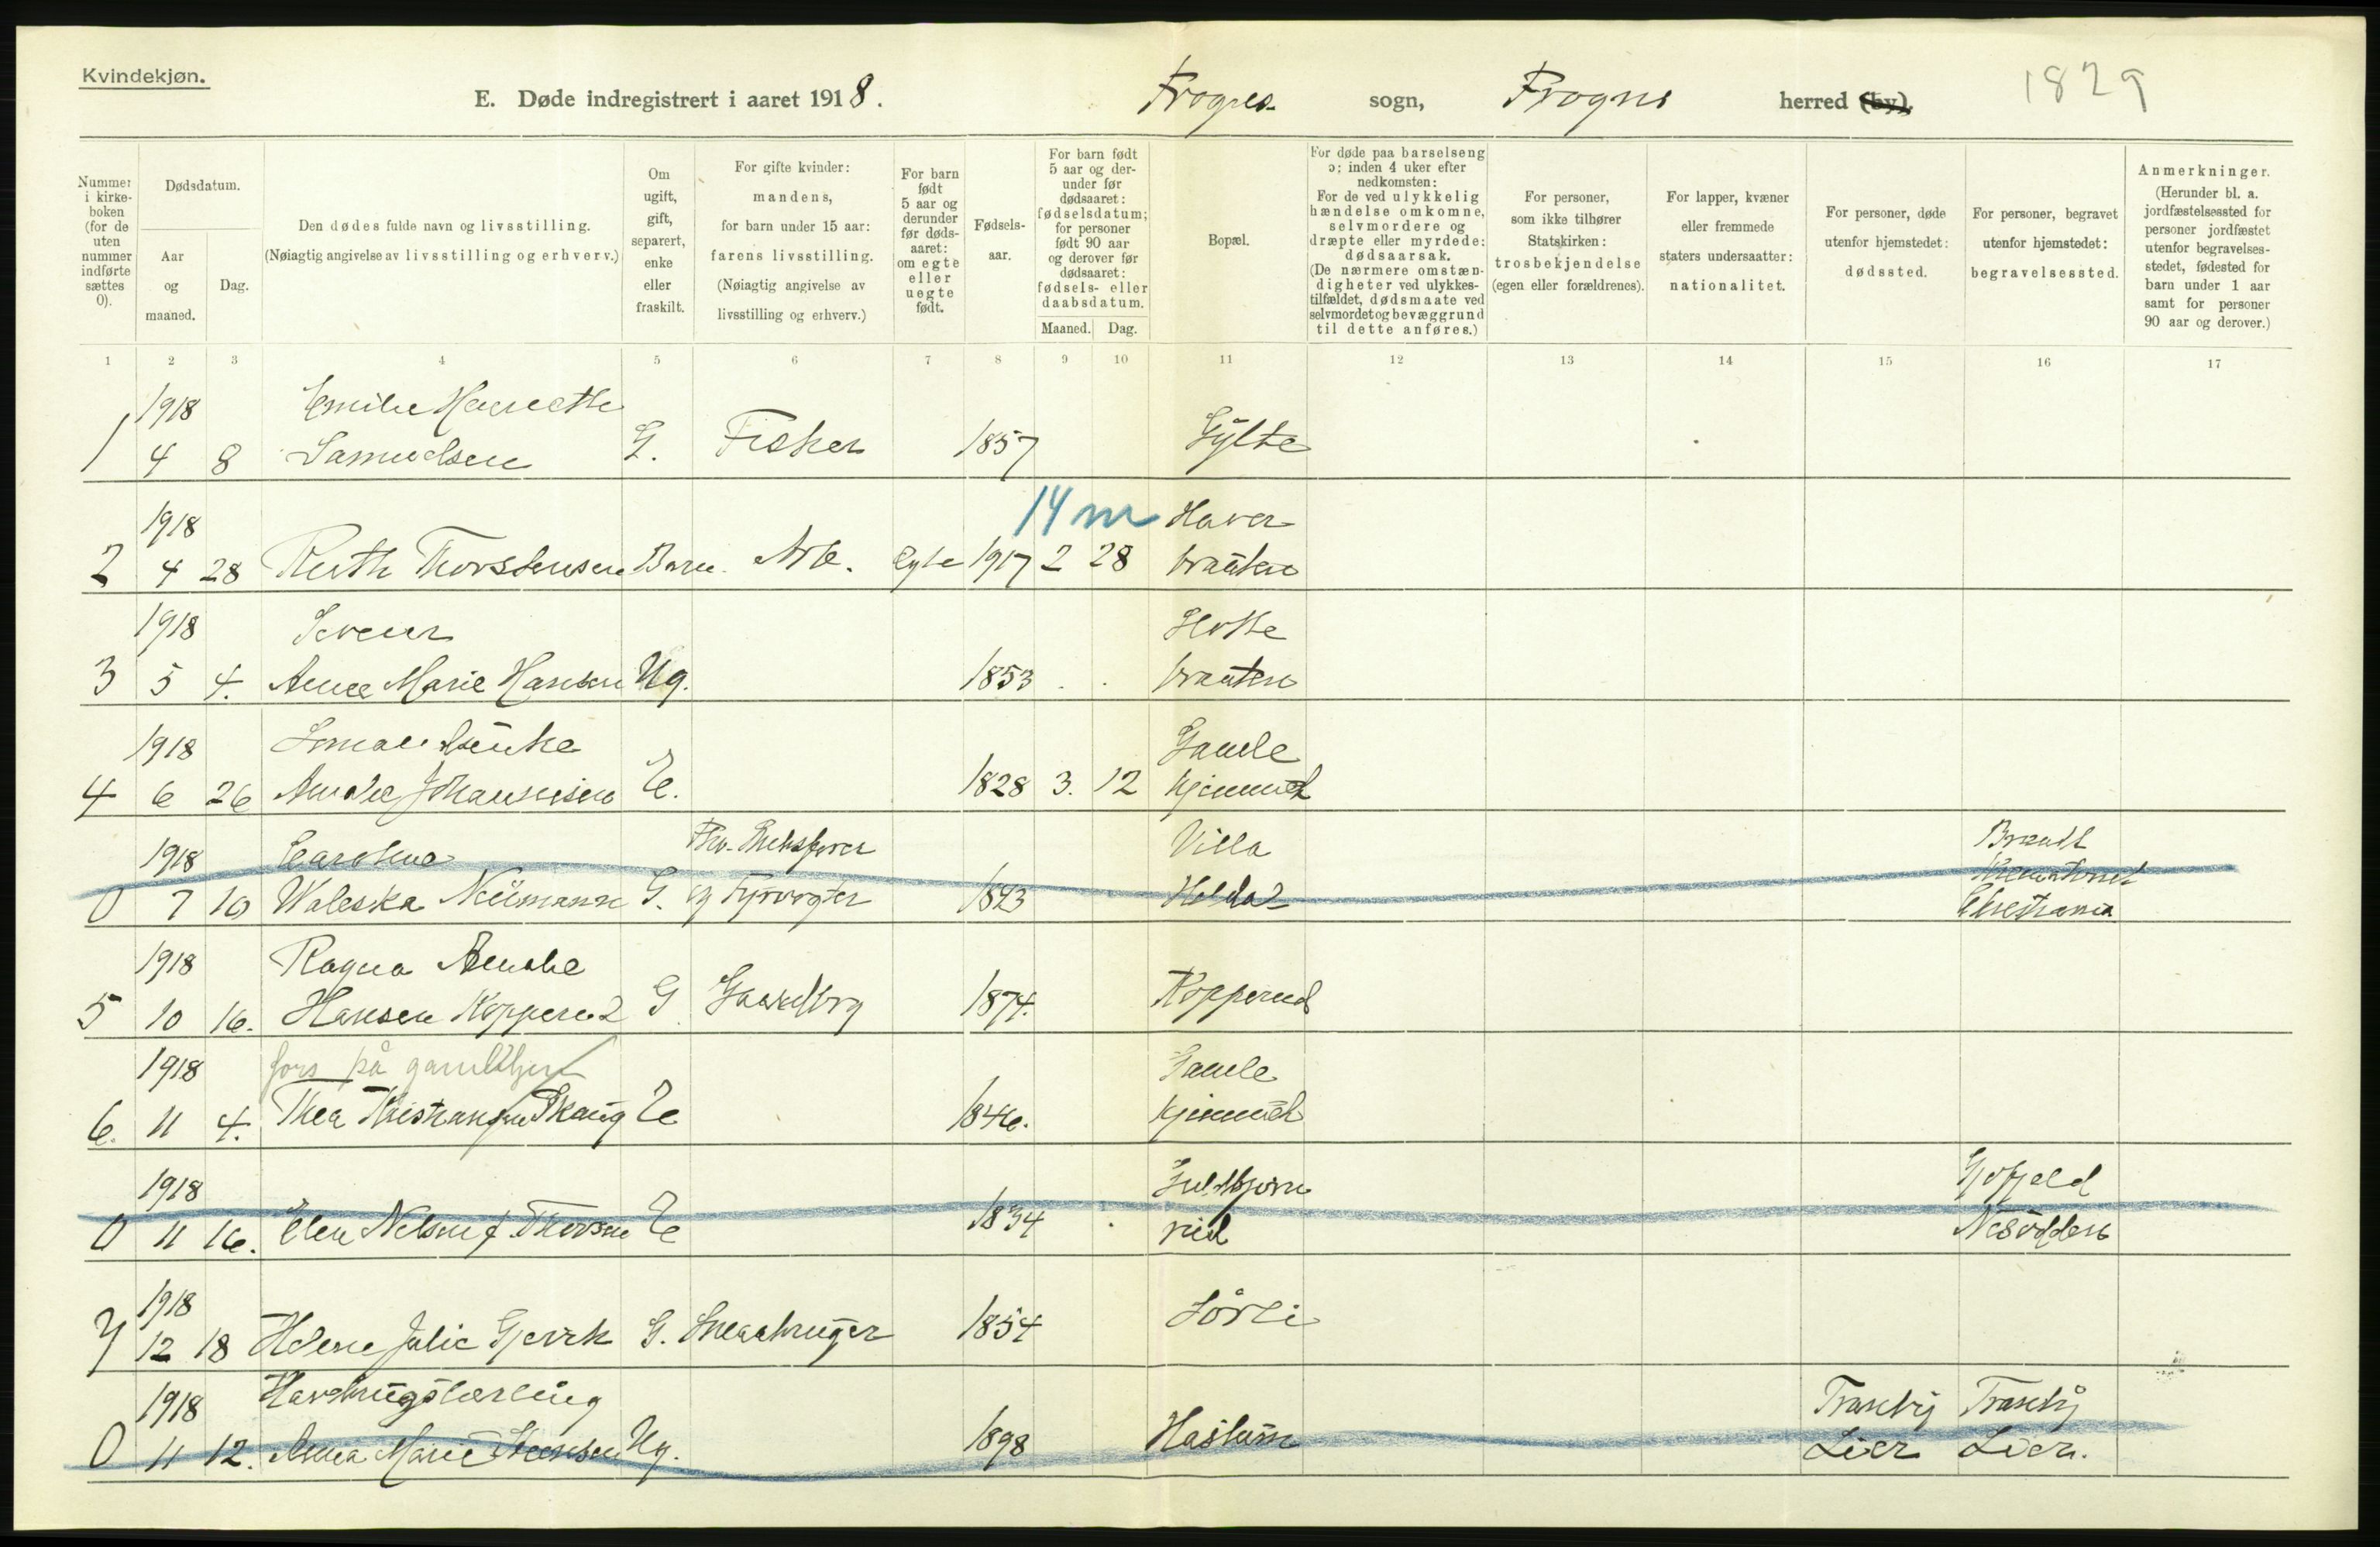 Kvindekjøn.
E. Døde indregistrert i aaret 1918. Frogns sogn, Frogns herred (by). 1829
Nummer i kirkeboken (for de uten nummer indførte sættes 0).
Dødsdatum.
Aar og maaned.
Dag.
Den dødes fulde navn og livsstilling.
(Nøiagtig angivelse av livsstilling og erhverv.)
Om ugift, gift, separert, enke eller fraskilt.
For gifte kvinder: mandens, for barn under 15 aar: farens livsstilling. (Nøiagtig angivelse av livsstilling og erhverv.)
For barn født 5 aar og derunder før dødsaaret: om egte eller uegte født.
Fødselsaar.
For barn født 5 aar og derunder før dødsaaret: fødselsdatum; for personer født 90 aar og derover før dødsaaret: fødsels- eller daabsdatum.
Maaned. Dag.
Bopæl.
For døde paa barselseng ɔ: inden 4 uker efter nedkomsten: For de ved ulykkelig hændelse omkomne, selvmordere og dræpte eller myrdede: dødsaarsak. (De nærmere omstændigheter ved ulykkestilfældet, dødsmaate ved selvmordet og bevæggrund til dette anføres.)
For personer, som ikke tilhører Statskirken: trosbekjendelse (egen eller forældrenes).
For lapper, kvæner eller fremmede staters undersaatter: nationalitet.
For personer, døde utenfor hjemstedet: dødssted.
For personer, begravet utenfor hjemstedet: begravelsessted.
Anmerkninger. (Herunder bl. a. jordfæstelsessted for personer jordfæstet utenfor begravelsesstedet, fødested for barn under 1 aar samt for personer 90 aar og derover.)
1 2 3 4 5 6 7 8 9 10 11 12 13 14 15 16 17
1918 Emilie
1 4 8 Samuelsen G. Fisker 1857 Gylte
1918 14 m Haver
2 4 28 Ruth Thorstensen Barn Arb. egte 1917 2 28 braaten
1918
3 5 4. Anne Marie Hansen Ug. 1853 braaten
1918 Gamle
4 6 26 Amalie Johannesen E. 1828 3. 12 hjemmet
1918 Caroline Villa Brændt
0 7 10 Waleska Neümann G. og Fyrvogter 1893 Krematoriet
Christiania
1918 Ragna Amalie
5 10 16. Hansen Kopperud G Gaardbrg 1874. Kopperud
1918 fors på gamlehjem Gamle
6. 11 4. Thea Kristiansen Skaug E 1846. hjemmet
1918 Gjøfjeld
0 11 16. Elen Nelson f. Thorsen E 1834 rud Nesodden
1918
7 12 18 Helene Julie Gjervik G. Smaabruger 1854 Sørli
1918 Havebrugslærling Tranby Tranby
0 11 12. Anna Marie Ug. 1898 Haslum Lier Lier.